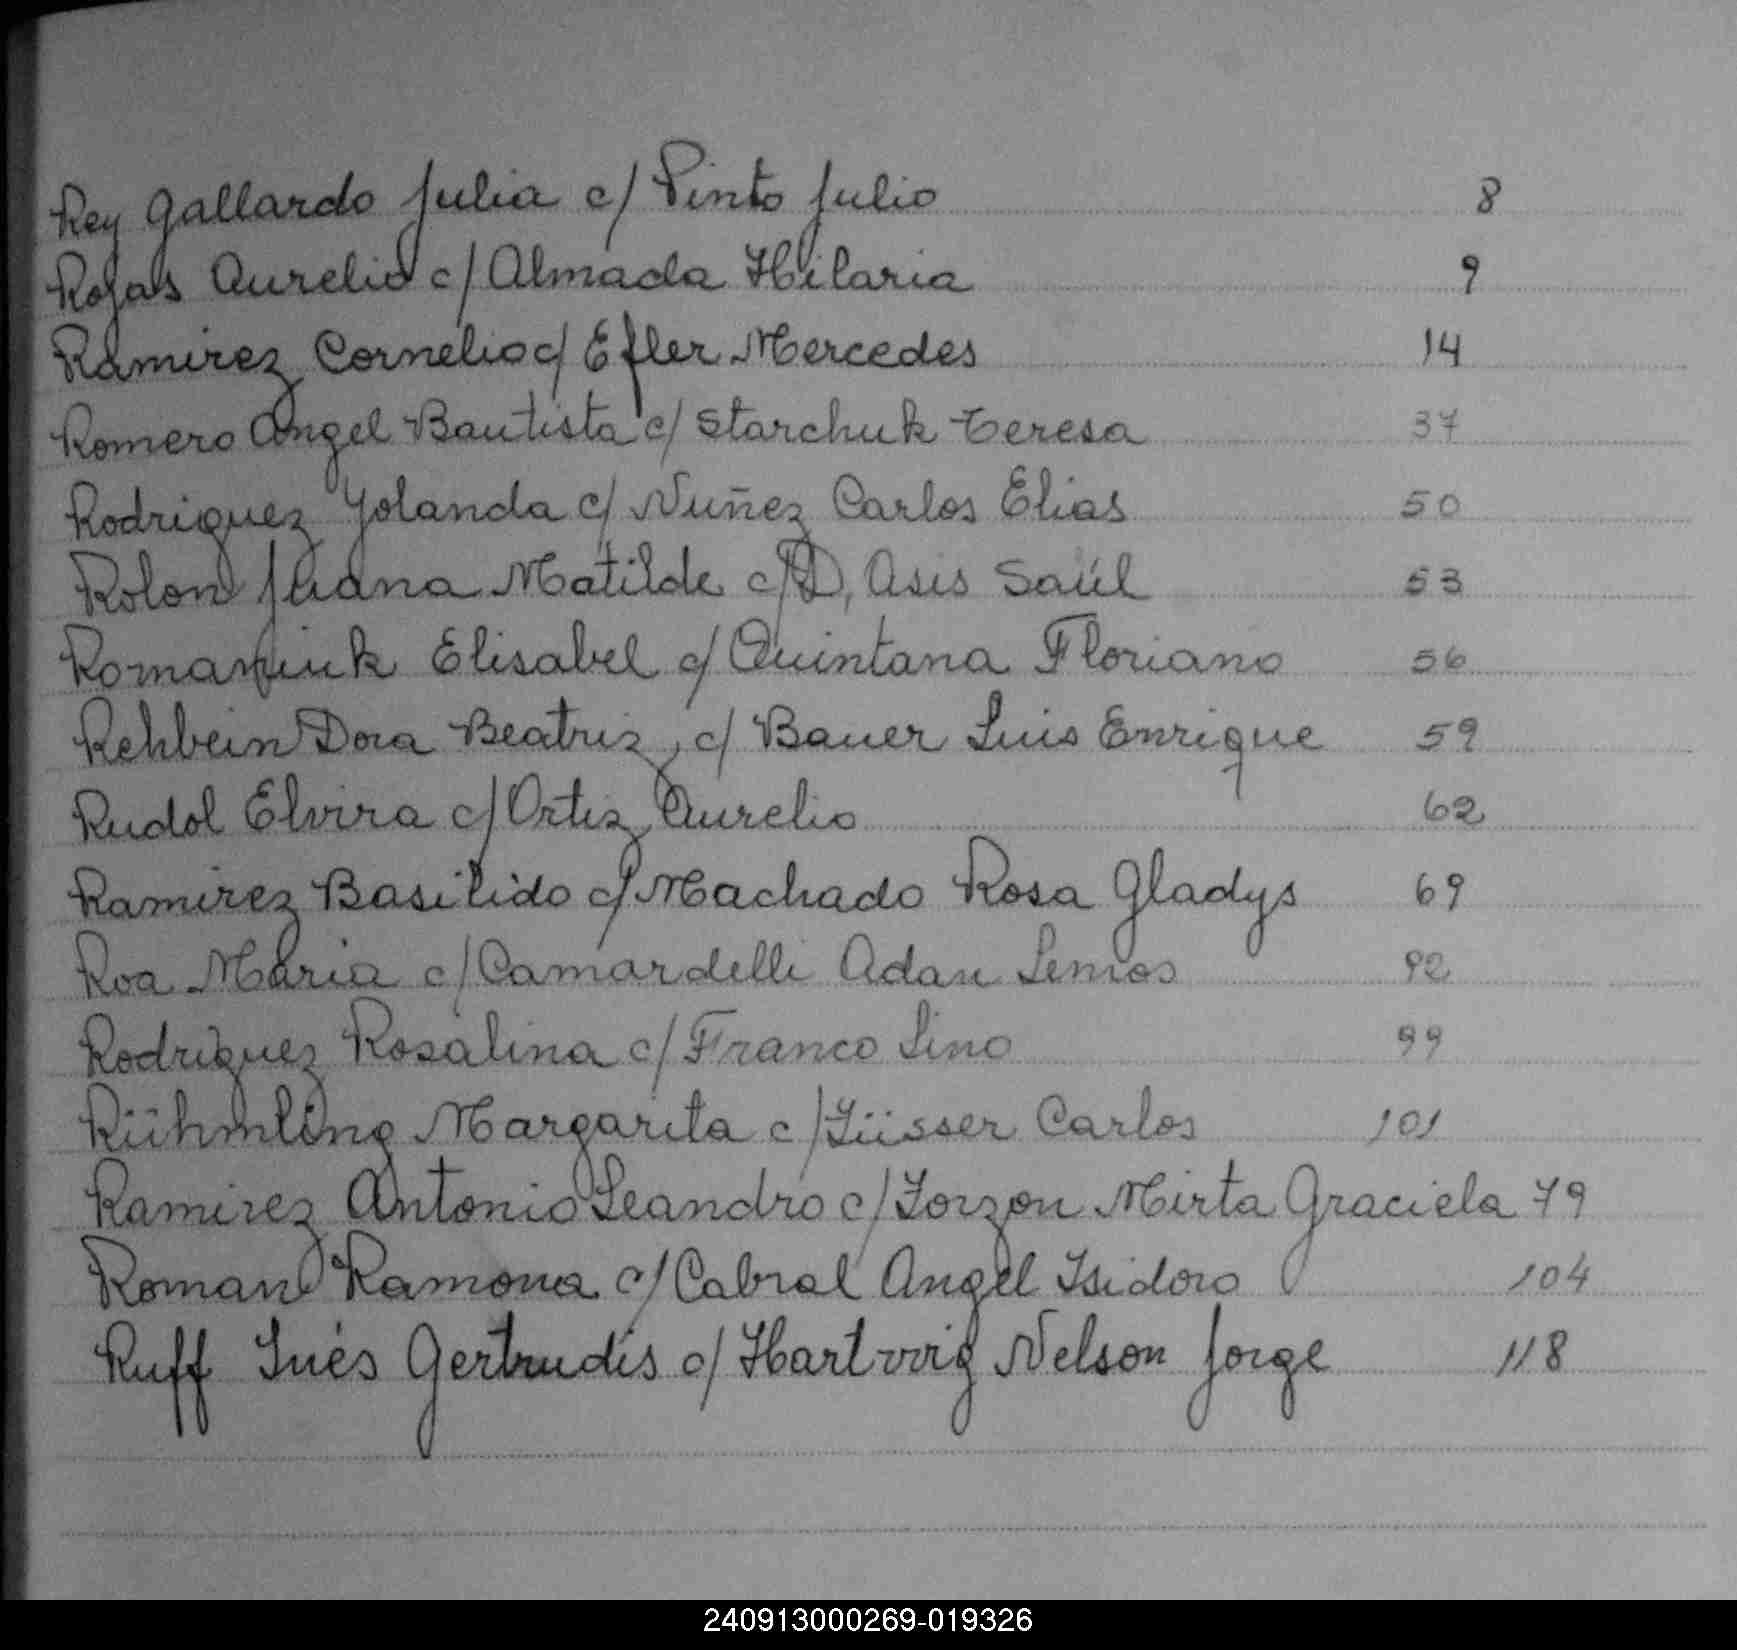 Rey Gallardo Julia c/ Pinto Julio 8
Rojas Aurelio c/ Almada Hilaria 9
Ramirez Cornelio c/ Efler Mercedes 14
Romero Angel Bautista c/ Starchuk Teresa 37
Rodriguez Yolanda c/ Nuñez Carlos Elias 50
Rolon Juana Matilde c/ D, Asis Saúl 53
Romaniuk Elisabel c/ Quintana Floriano 56
Rehbein Dora Beatriz c/ Bauer Luis Enrique 59
Rudol Elvira c/ Ortiz Aurelio 62
Ramirez Basilido c/ Machado Rosa Gladys 69
Roa Maria c/ Camardelli Adan Lemos 92
Rodriguez Rosalina c/ Franco Lino 99
Rühmling Margarita c/ Züsser Carlos 101
Ramirez Antonio Leandro c/ Zorzon Mirta Graciela 79
Roman Ramona c/ Cabral Angel Isidoro 104
Ruff Inés Gertrudis c/ Hartwig Nelson Jorge 118
240913000269-019326